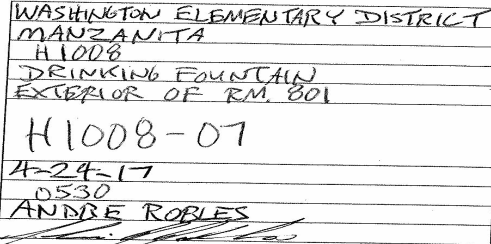 WASHINGTON ELEMENTARY DISTRICT
MANZANITA
H1008
DRINKING FOUNTAIN
EXTERIOR OF RM. 801
H1008-07
4-24-17
0530
ANDRE ROBLES